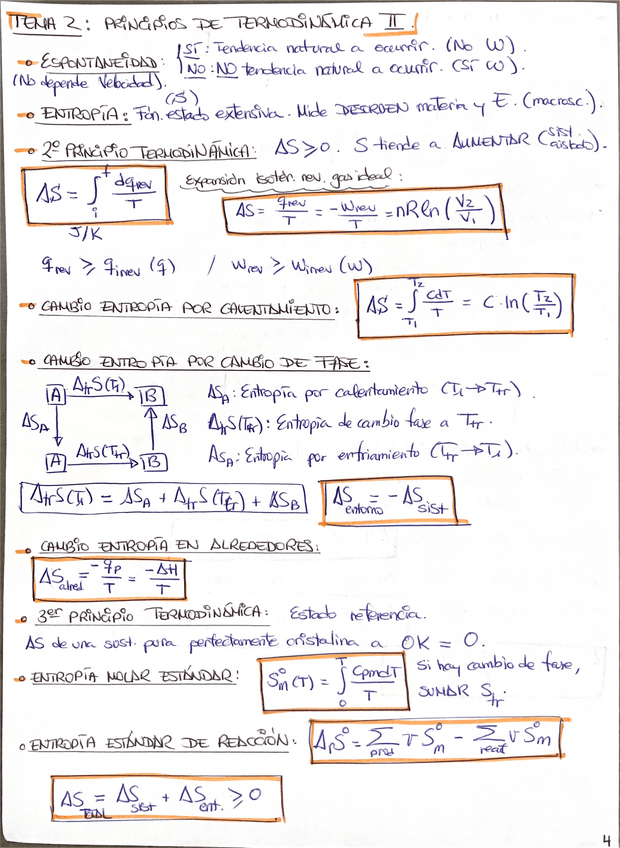 TEMA 2: PRINCIPIOS DE TERMODINÁMICA II.
• ESPONTANEIDAD: { SÍ: Tendencia natural a ocurrir. (No W).
(No depende Velocidad). NO: NO tendencia natural a ocurrir. (SÍ W).
(S)
• ENTROPÍA: Fón. estado extensiva. Mide DESORDEN materia y E. (macrosc.).
• 2º PRINCIPIO TERMODINÁMICA: ΔS ≥ 0. S tiende a AUMENTAR (sist. aislado).
ΔS = ∫ᵢᶠ dqrev/T
Expansión isotér. rev. gas ideal:
ΔS = qrev/T = -Wrev/T = nRln(V2/V1)
J/K
qrev ≥ qirrev (q) / Wrev ≥ Wirrev (W)
• CAMBIO ENTROPÍA POR CALENTAMIENTO: ΔS = ∫T1T2 CdT/T = C·ln(T2/T1)
• CAMBIO ENTROPÍA POR CAMBIO DE FASE:
A ΔtrS(T1) → B
ΔSA: Entropía por calentamiento (T1→Ttr).
ΔSA ↓ ↑ ΔSB
ΔtrS(Ttr): Entropía de cambio fase a Ttr.
A ΔtrS(Ttr) → B
ΔSA: Entropía por enfriamiento (Ttr→T1).
ΔtrS(T1) = ΔSA + ΔtrS(Ttr) + ΔSB
ΔS entorno = -ΔS sist
• CAMBIO ENTROPÍA EN ALREDEDORES:
ΔS alred = -qp/T = -ΔH/T
• 3er PRINCIPIO TERMODINÁMICA: Estado referencia.
ΔS de una sust. pura perfectamente cristalina a 0K = 0.
• ENTROPÍA MOLAR ESTÁNDAR: S°m(T) = ∫0T CpmdT/T Si hay cambio de fase,
SUMAR Str.
• ENTROPÍA ESTÁNDAR DE REACCIÓN: ΔrS° = Σprod ν S°m - Σreact ν S°m
ΔS TOTAL = ΔS sist + ΔS ent. ≥ 0
4